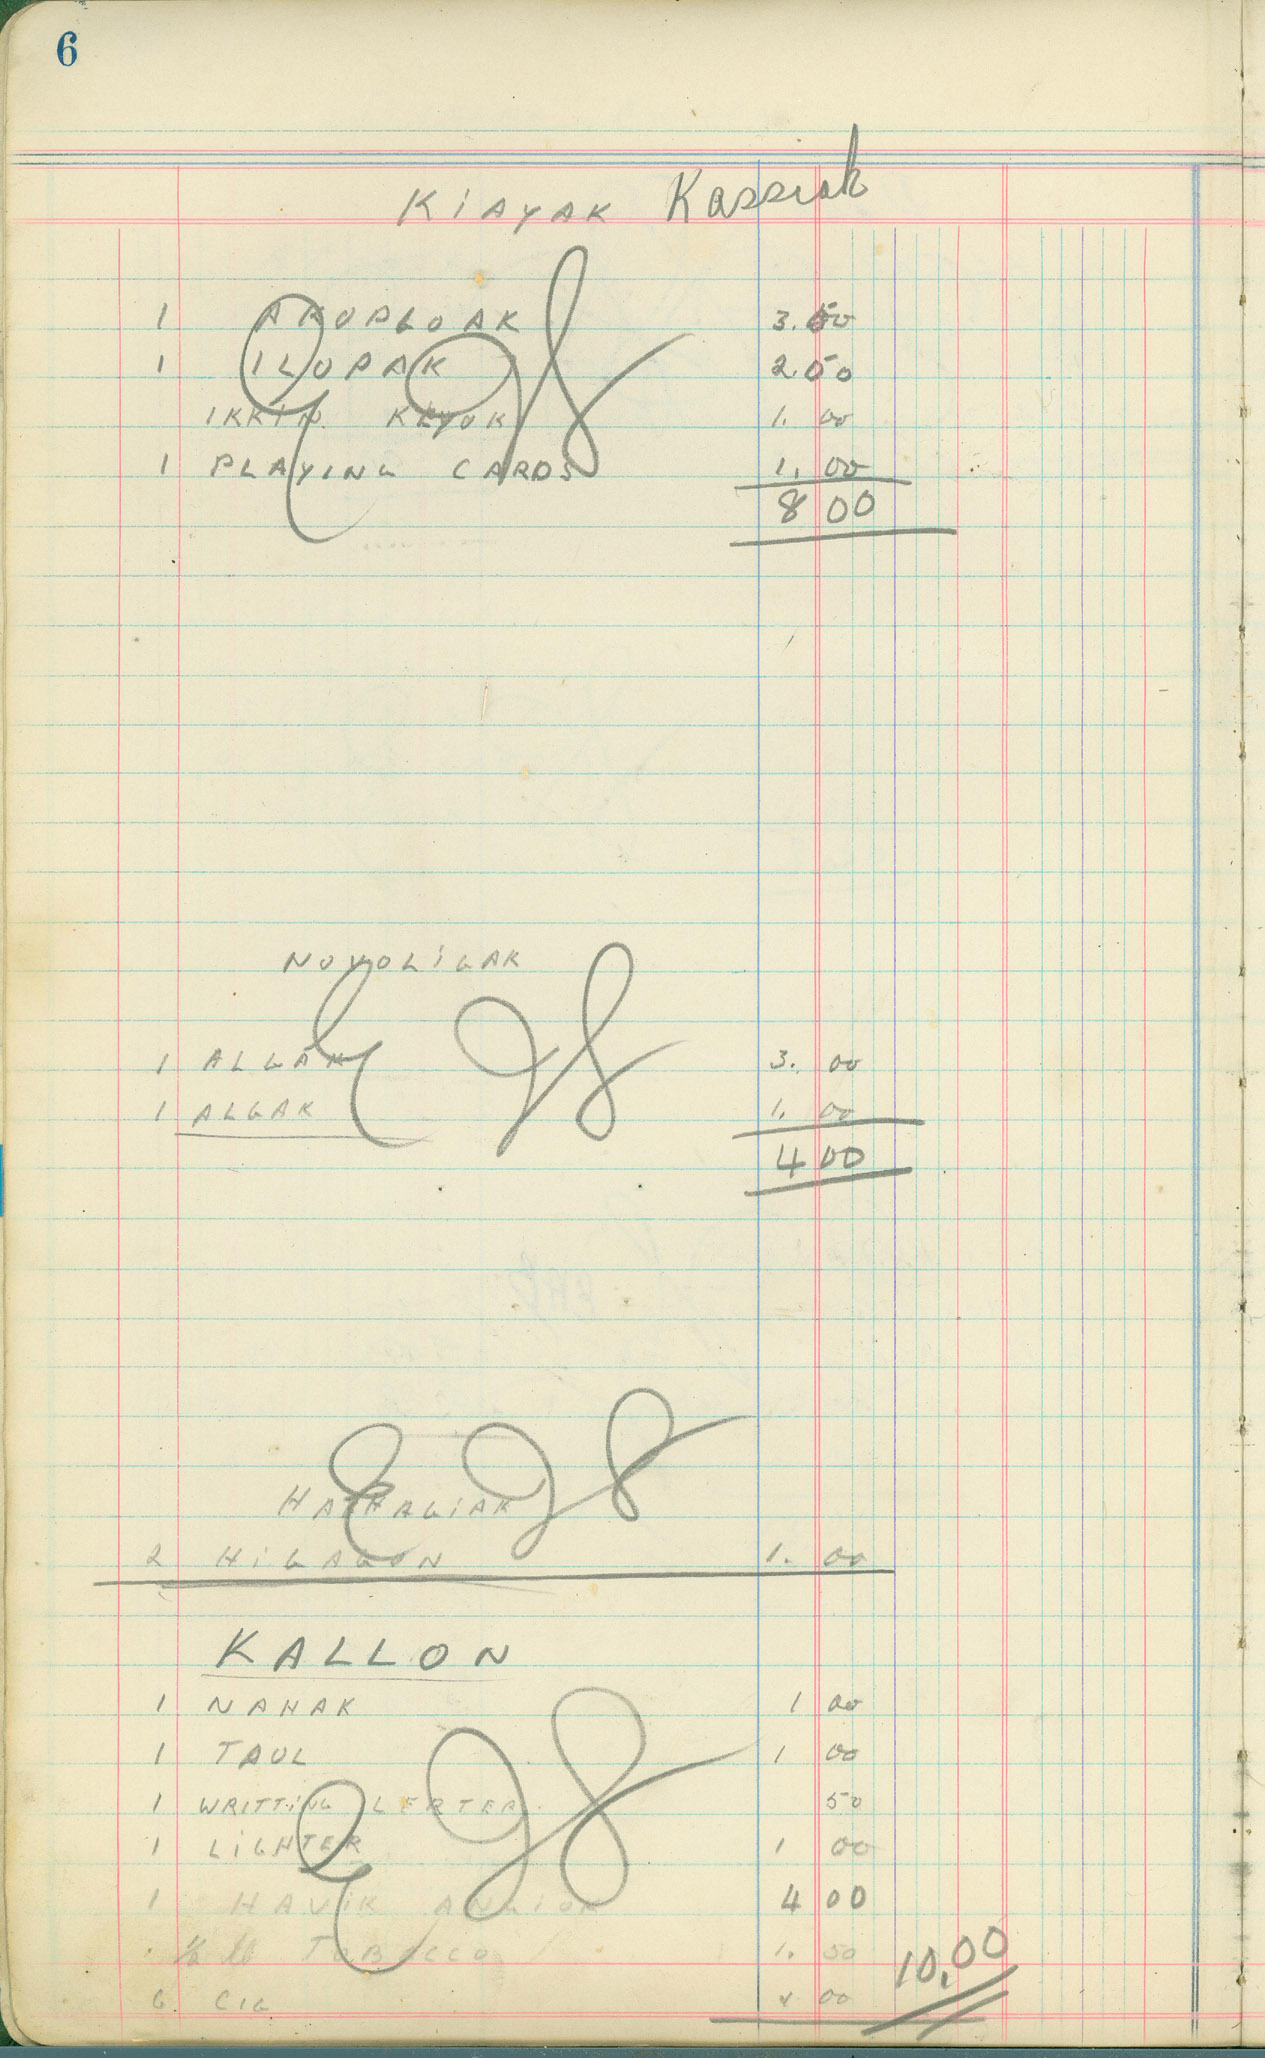 6
KIAYAK Kassiak
1 AKUPLUAK 3.50
1 ILUPAK 2 50
IKKIN 1. 00
1 PLAYING CARDS 1. 00
8 00
NOVOLIGAK
1 ALGAK 3. 00
1 ALGAK 1. 00
4 00
2 HIGAGON 1. 00
KALLON
1 NAHAK 1 00
1 TAUL 1 00
1 WRITTING LERTER 50
1 LIGHTER 1 00
1 HAVIK 4 00
1/2 lb TOBACCO 1. 50
10.00
6 CIG 00